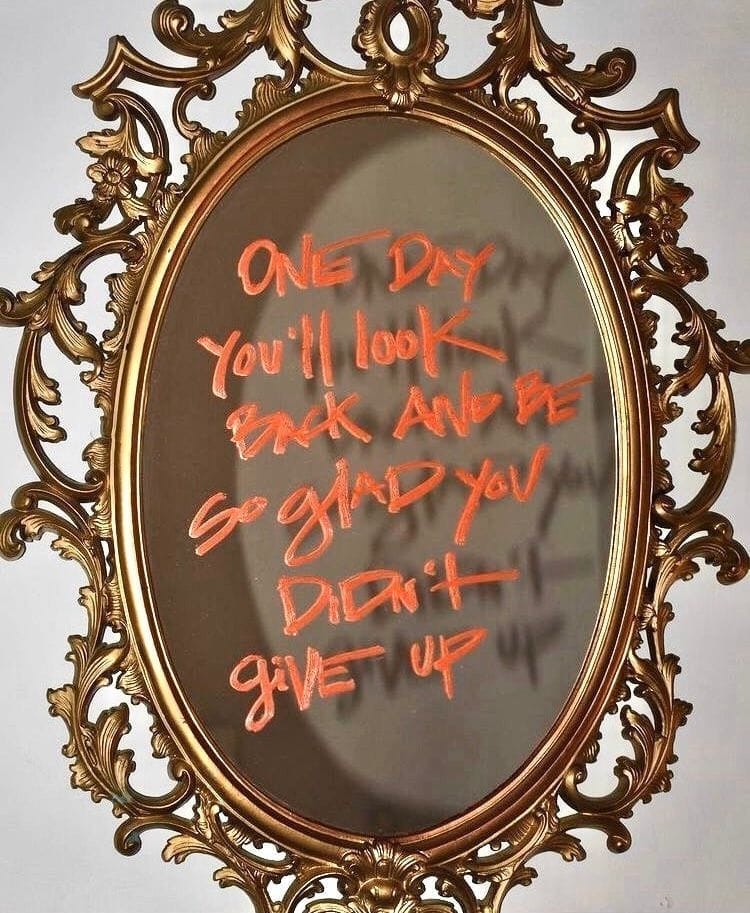 ONE DAY
YOU'll look
BACK AND BE
So glAD YOU
DiDN't
giVE UP